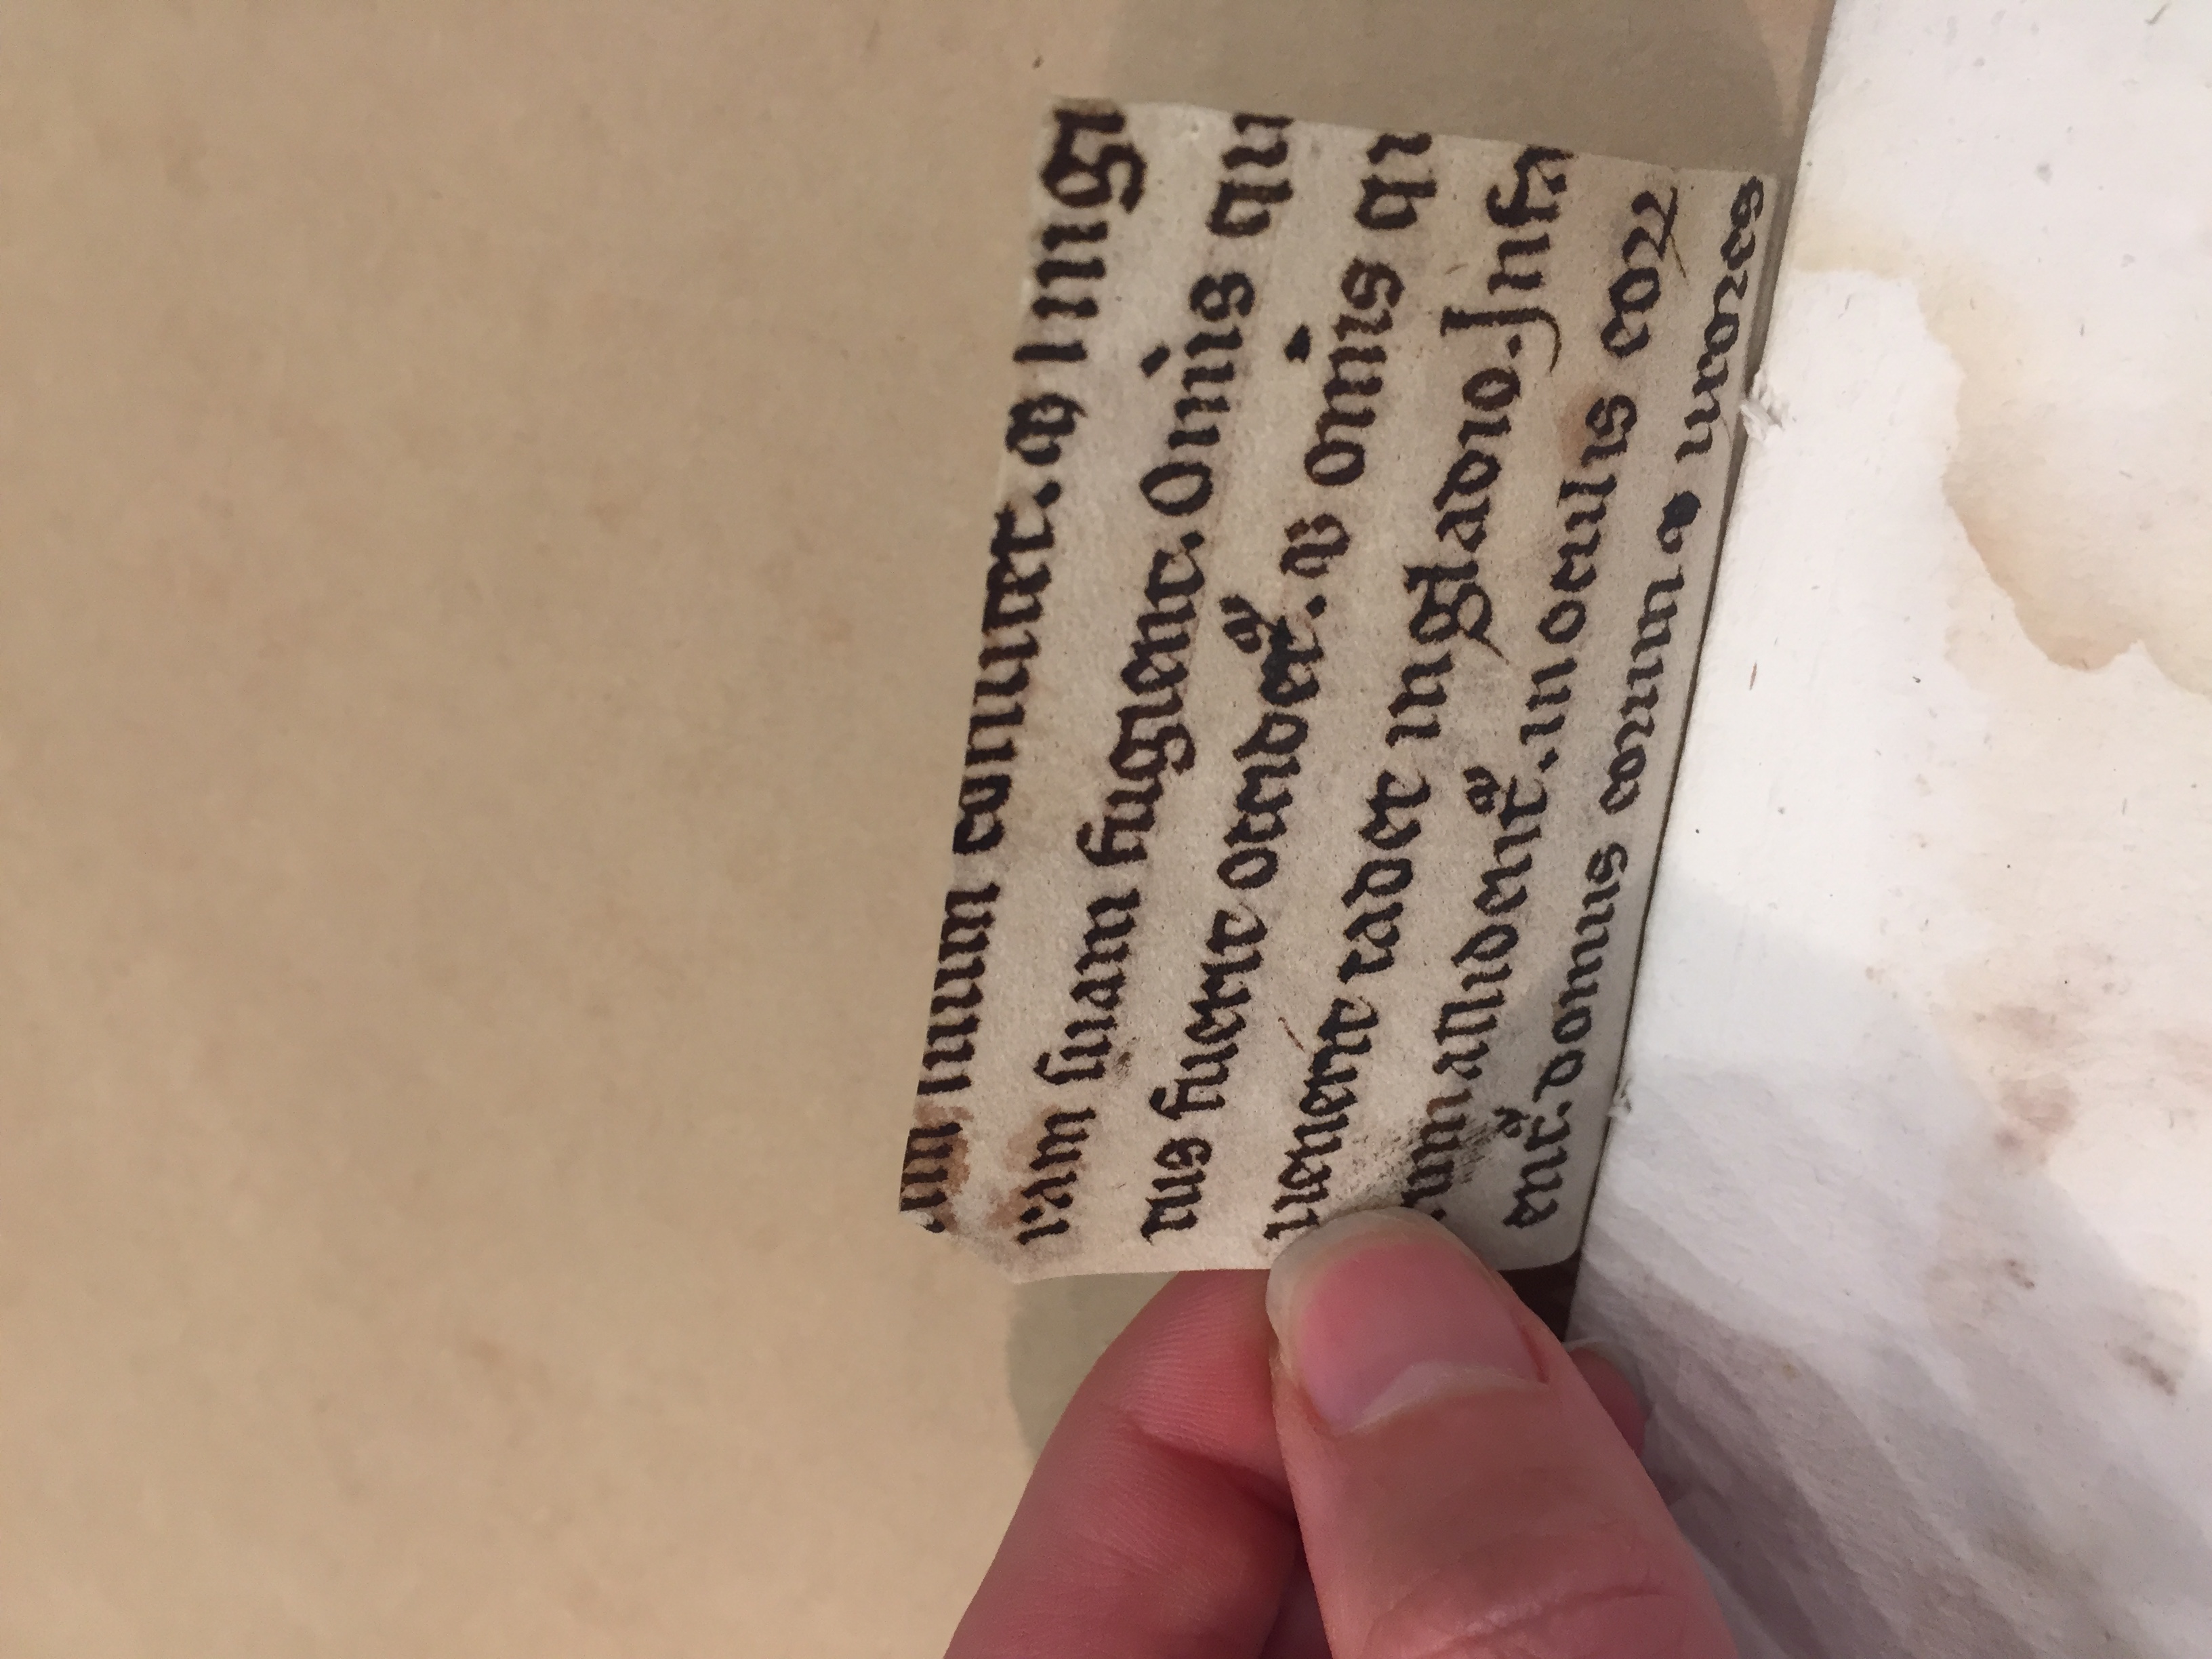 um suum conuertet᷑. & singl
ram suam fugient. Om̄is qui
tus fuerit occidet᷑. & om̄is qu
uenerit cadet in gladio. Infa
rum allident᷑. in oculis eoꝝ
ent᷑. domus eorum & uxores